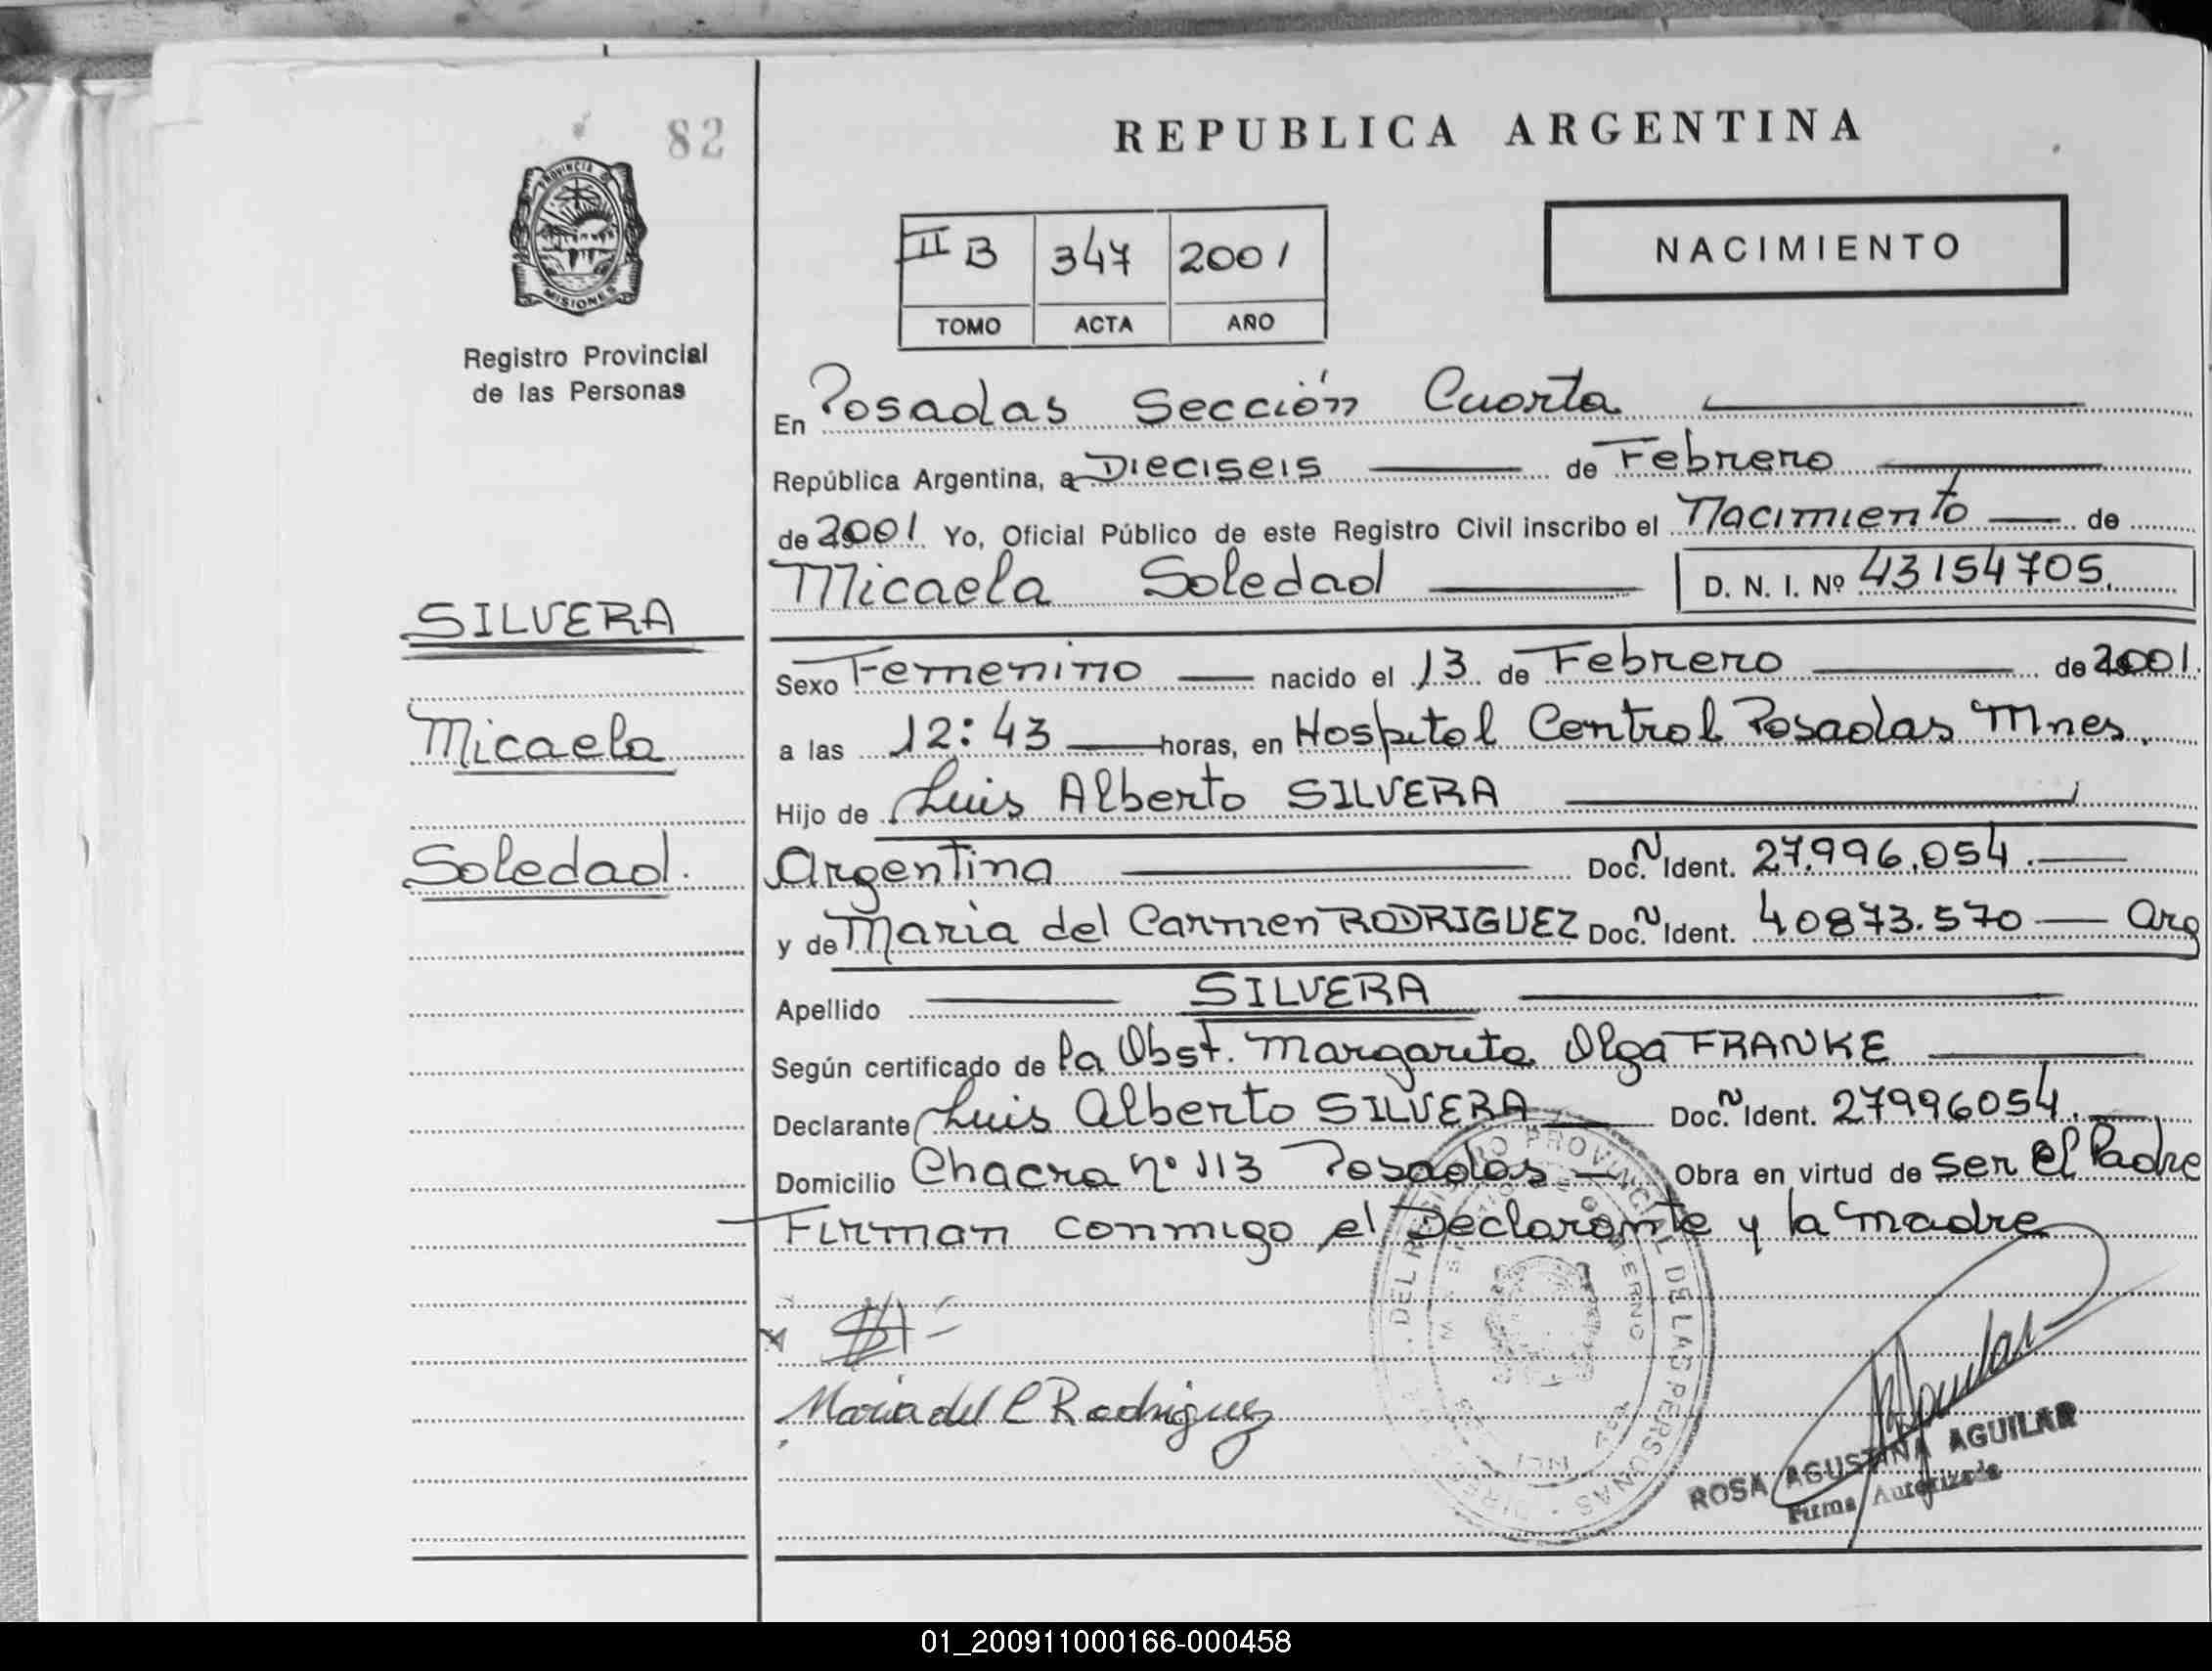 82
PROVINCIA DE
MISIONES
Registro Provincial
de las Personas
SILVERA
Micaela
Soledad.
REPUBLICA ARGENTINA
II B 347 2001
TOMO ACTA AÑO
NACIMIENTO
En Posadas Sección Cuarta
República Argentina, a Dieciseis de Febrero
de 2001 Yo, Oficial Público de este Registro Civil inscribo el Nacimiento de
Micaela Soledad D. N. I. Nº 43154705.
Sexo Femenino nacido el 13 de Febrero de 2001.
a las 12:43 horas, en Hospital Central Posadas Mnes.
Hijo de Luis Alberto SILVERA
Argentina Doc. N Ident. 27.996.054.
y de Maria del Carmen RODRIGUEZ Doc. N Ident. 40873.570 Arg
Apellido SILVERA
Según certificado de la Obst. Margarita Olga FRANKE
Declarante Luis Alberto SILVERA Doc. N Ident. 27996054.
Domicilio Chacra nº 113 Posadas Obra en virtud de ser el Padre
Firman conmigo el Declarante y la madre
Maria del C Rodriguez
DEL REGISTRO PROVINCIAL DE LAS PERSONAS
ROSA AGUSTINA AGUILAR
Firma Autorizada
01_200911000166-000458